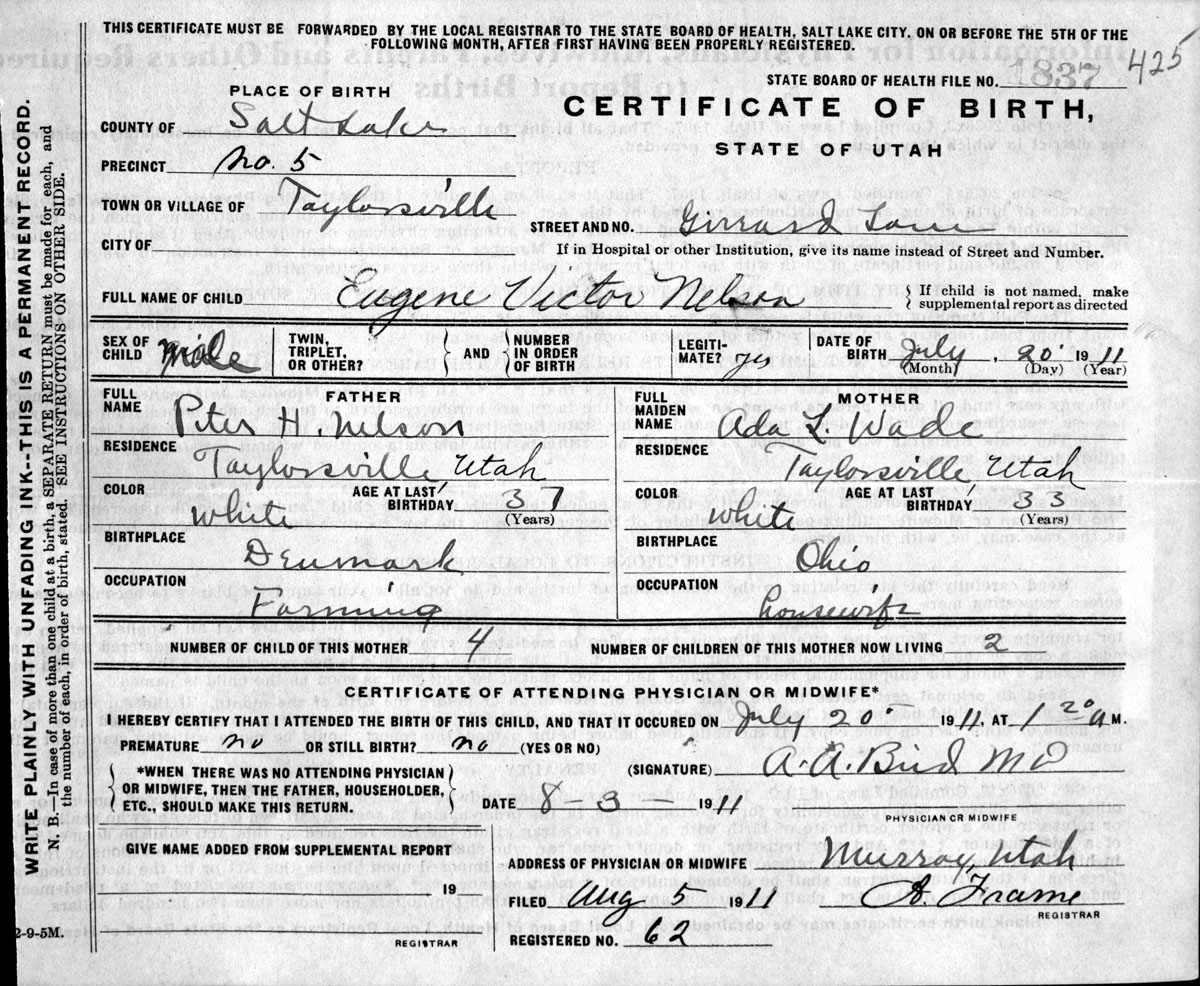 THIS CERTIFICATE MUST BE FORWARDED BY THE LOCAL REGISTRAR TO THE STATE BOARD OF HEALTH, SALT LAKE CITY. ON OR BEFORE THE 5TH OF THE
FOLLOWING MONTH, AFTER FIRST HAVING BEEN PROPERLY REGISTERED.
425
STATE BOARD OF HEALTH FILE NO. 1837
PLACE OF BIRTH
CERTIFICATE OF BIRTH,
STATE OF UTAH
COUNTY OF Salt Lake
PRECINCT No. 5
TOWN OR VILLAGE OF Taylorsville
STREET AND NO.
CITY OF
If in Hospital or other Institution, give its name instead of Street and Number.
FULL NAME OF CHILD Eugene Victor Nelson
If child is not named, make
supplemental report as directed
SEX OF CHILD male
TWIN, TRIPLET, OR OTHER?
AND
NUMBER IN ORDER OF BIRTH
LEGITIMATE? yes
DATE OF BIRTH July 20 1911
(Month) (Day) (Year)
FATHER
FULL NAME Peter H. Nelson
RESIDENCE Taylorsville, Utah
COLOR White
AGE AT LAST BIRTHDAY 37
(Years)
BIRTHPLACE Denmark
OCCUPATION Farming
MOTHER
FULL MAIDEN NAME Ada L. Wade
RESIDENCE Taylorsville, Utah
COLOR White
AGE AT LAST BIRTHDAY 33
(Years)
BIRTHPLACE Ohio
OCCUPATION housewife
NUMBER OF CHILD OF THIS MOTHER 4 NUMBER OF CHILDREN OF THIS MOTHER NOW LIVING 2
CERTIFICATE OF ATTENDING PHYSICIAN OR MIDWIFE*
I HEREBY CERTIFY THAT I ATTENDED THE BIRTH OF THIS CHILD, AND THAT IT OCCURED ON July 20 1911, AT 1 20 A M.
PREMATURE no OR STILL BIRTH? no (YES OR NO)
*WHEN THERE WAS NO ATTENDING PHYSICIAN
OR MIDWIFE, THEN THE FATHER, HOUSEHOLDER,
ETC., SHOULD MAKE THIS RETURN.
(SIGNATURE) A. A. Bird MD
DATE 8-3- 1911
PHYSICIAN OR MIDWIFE
GIVE NAME ADDED FROM SUPPLEMENTAL REPORT
19
REGISTRAR
ADDRESS OF PHYSICIAN OR MIDWIFE Murray Utah
FILED Aug 5 1911 A. Frame
REGISTRAR
REGISTERED NO. 62
2-9-5M.
WRITE PLAINLY WITH UNFADING INK--THIS IS A PERMANENT RECORD.
N. B.—In case of more than one child at a birth, a SEPARATE RETURN must be made for each, and
the number of each, in order of birth, stated. SEE INSTRUCTIONS ON OTHER SIDE.